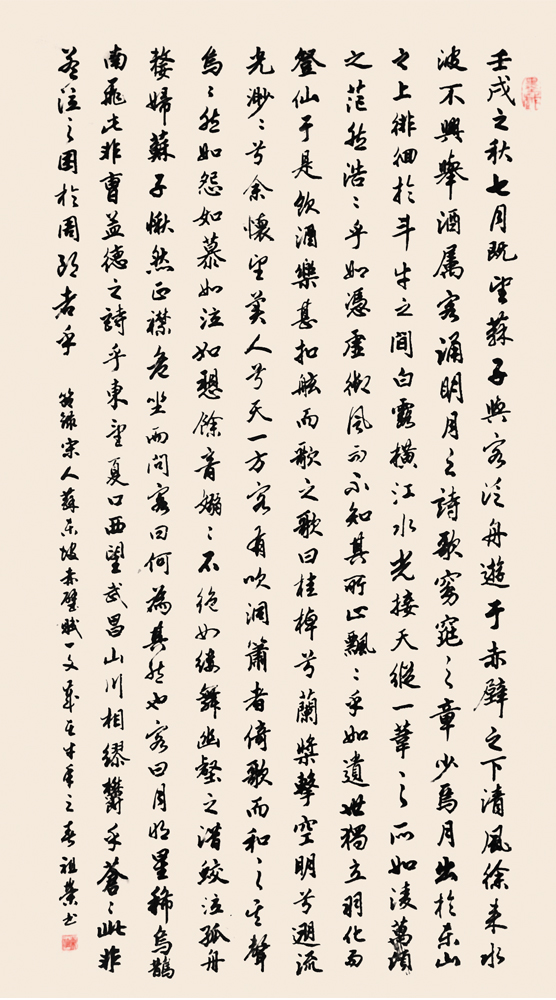 壬戌之秋七月既望蘇子與客泛舟遊于赤壁之下清風徐来水
波不興舉酒属客誦明月之詩歌窈窕之章少焉月出於东山
之上徘徊於斗牛之間白露横江水光接天縱一葦之所如凌萬頃
之茫然浩〻乎如憑虚御風而不知其所止飄〻乎如遺世獨立羽化而
登仙于是飲酒樂甚扣舷而歌之歌曰桂棹兮蘭槳擊空明兮遡流
光渺〻兮余懷望美人兮天一方客有吹洞簫者倚歌而和之其聲
烏〻然如怨如慕如泣如愬餘音嫋〻不绝如缕舞幽壑之潜鲛泣孤舟
嫠婦蘇子愀然正襟危坐而問客曰何為其然也客曰月明星稀烏鵲
南飛此非曹孟德之詩乎東望夏口西望武昌山川相繆鬱乎蒼〻此非
孟德之困於周郎者乎
錄宋人蘇东坡赤壁賦一文歲在年之春祖荣书